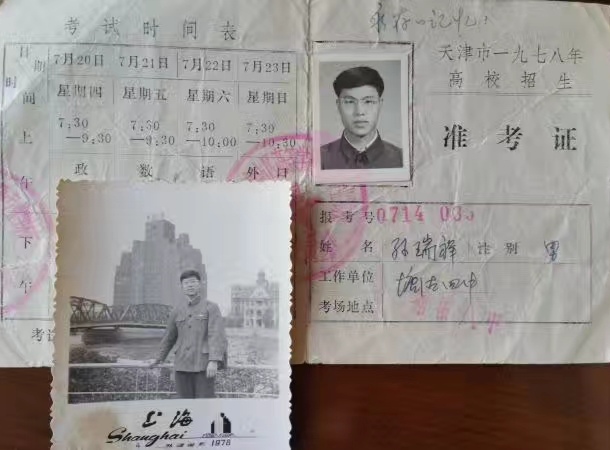 考试时间表
日期
时间
7月20日 7月21日 7月22日 7月23日
星期四 星期五 星期六 星期日
上午
7;30—9;30 7;30—9;30 7;30—10;00 7;30—10;30
政 数 语 外
下午
考
永存的记忆:
天津市一九七八年
高校招生
准考证
报考号 0714 035
姓名 孙瑞祥 性别 男
工作单位
考场地点
上海
Shanghai
1978